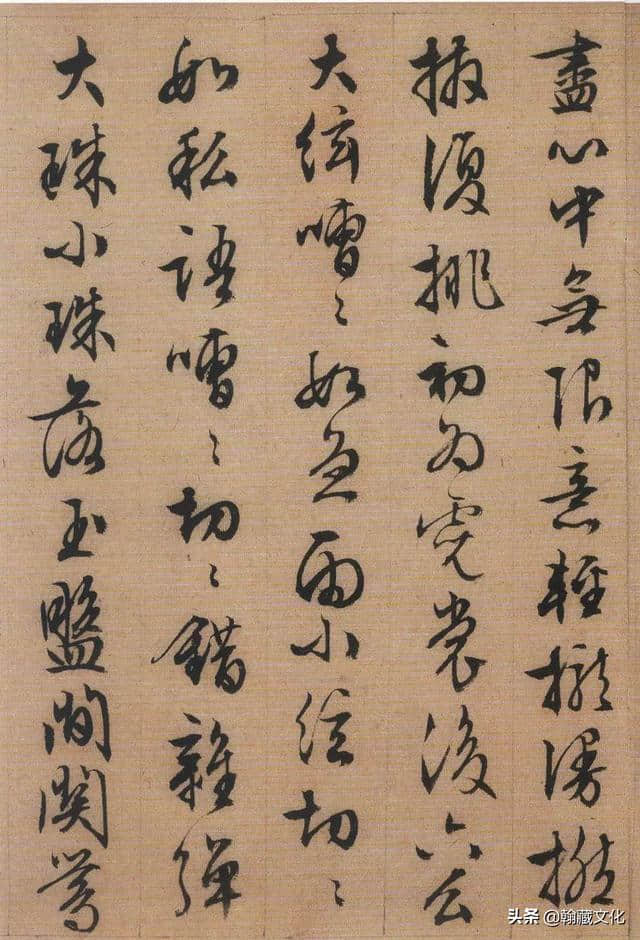 盡心中無限意輕攏漫撚
抹復挑初為霓裳後六么
大絃嘈〻如急雨小絃切〻
如私語嘈〻切〻錯雜彈
大珠小珠落玉盤間關鶯
头条 @翰藏文化